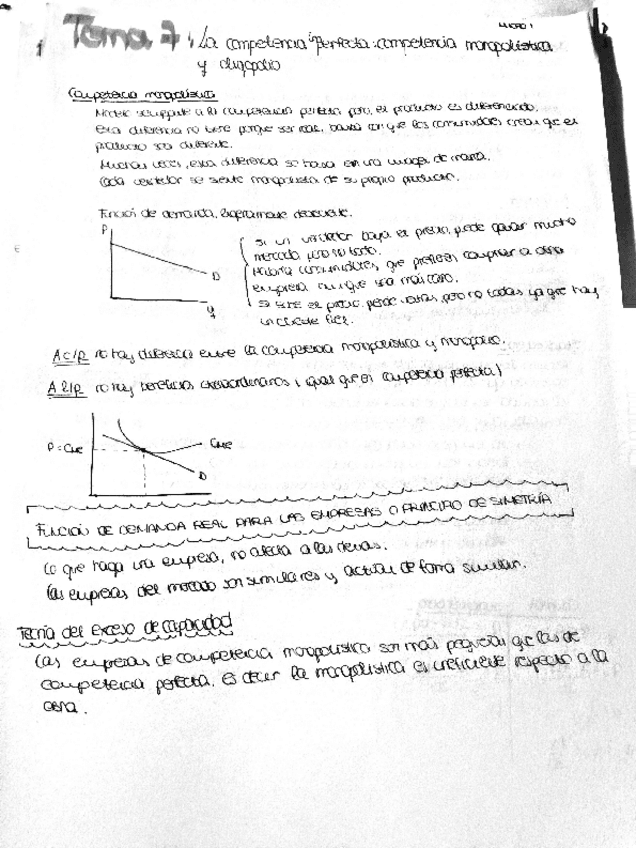 MICRO 1
Tema 7: La competencia imperfecta: competencia monopolística
y oligopolio
Competencia monopolística
Modelo semejante a la competencia perfecta pero, el producto es diferenciado.
Esta diferencia no tiene porque ser real, basta con que los consumidores crean que el
producto sea diferente.
Muchas veces, esta diferencia se basa en una imagen de marca.
Cada vendedor se siente monopolista de su propio producto.
Función de demanda, ligeramente descendente.
P
D
q
Si un vendedor baja el precio, puede ganar mucho
mercado pero no todo.
Habría consumidores, que prefieren comprar a otra
empresa aunque sea más caro.
Si sube el precio, pierde ventas, pero no todas ya que hay
un cliente fiel.
A c/p no hay diferencia entre la competencia monopolística y monopolio.
A l/p no hay beneficios extraordinarios (igual que en competencia perfecta)
P = CMe
CMe
D
FUNCIÓN DE DEMANDA REAL PARA LAS EMPRESAS O PRINCIPIO DE SIMETRÍA
Lo que haga una empresa, no afecta a las demás.
Las empresas del mercado son similares y actúan de forma similar.
Teoría del exceso de capacidad
Las empresas de competencia monopolística son más pequeñas que las de
competencia perfecta, es decir la monopolística es ineficiente respecto a la
otra.